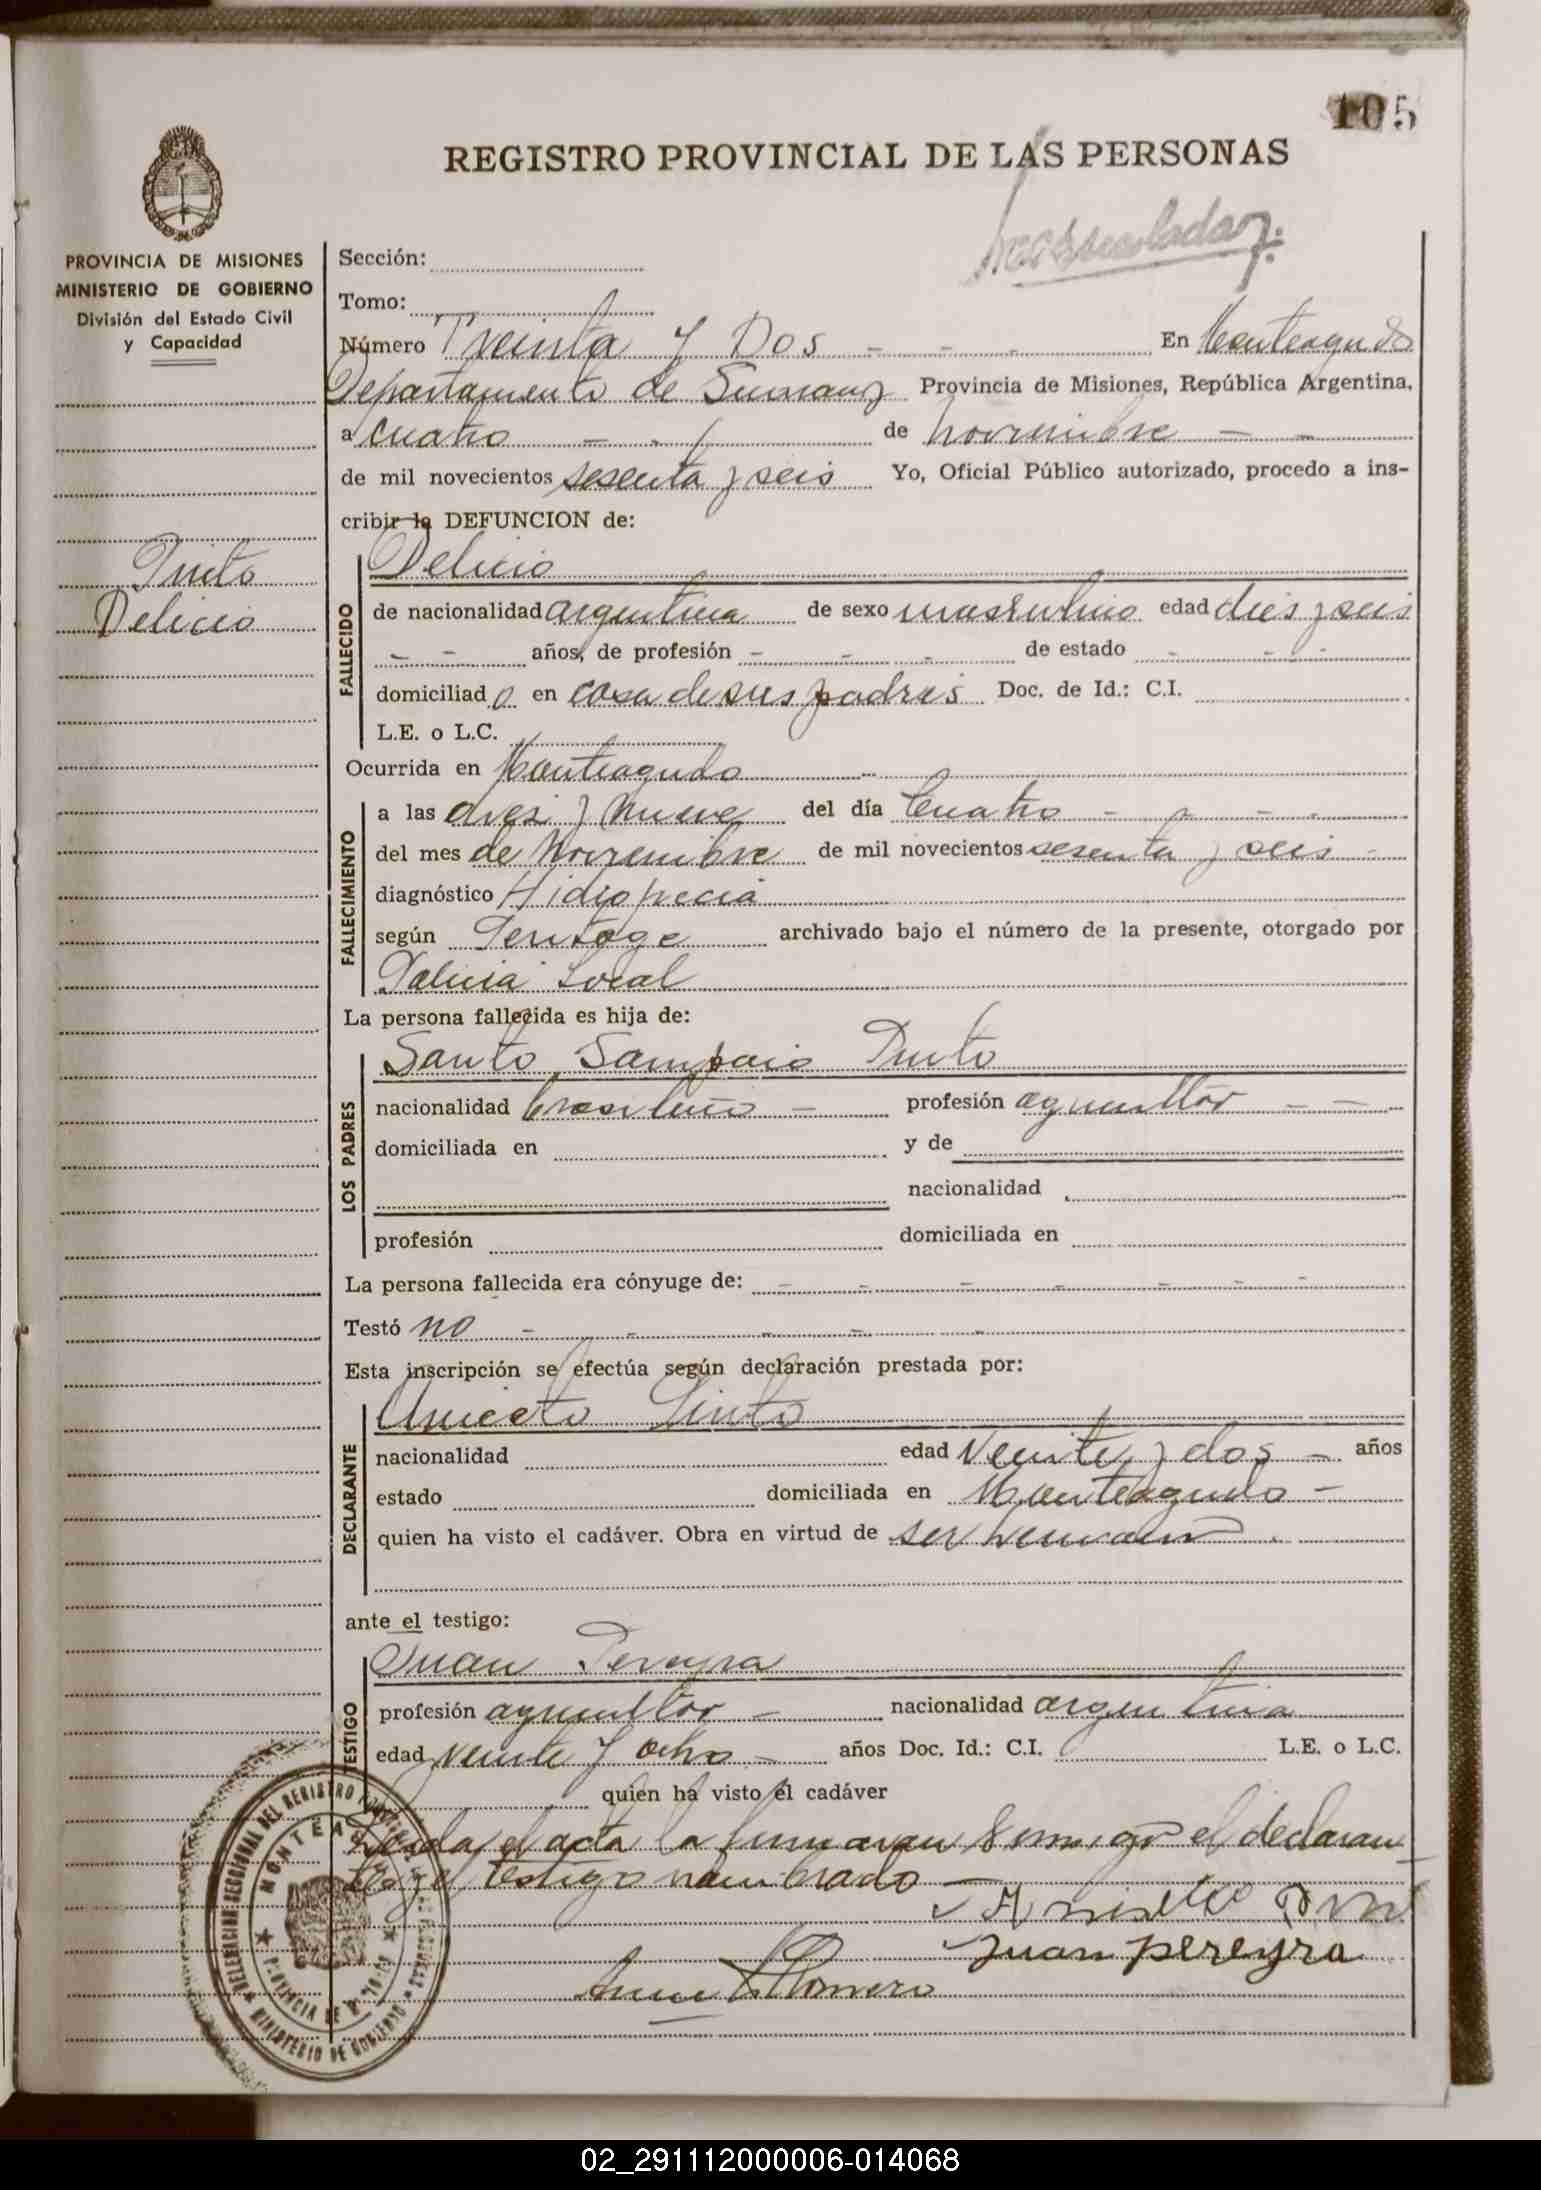 105
REGISTRO PROVINCIAL DE LAS PERSONAS
PROVINCIA DE MISIONES
MINISTERIO DE GOBIERNO
División del Estado Civil
y Capacidad
Pinto
Delicio
Sección:
Tomo:
Número Treinta y Dos - - - En Monteagudo
Departamento de Provincia de Misiones, República Argentina,
a cuatro - - de Noviembre - -
de mil novecientos sesenta y seis Yo, Oficial Público autorizado, procedo a ins-
cribir la DEFUNCION de:
FALLECIDO
Delicio
de nacionalidad argentina de sexo masculino edad dies y seis
- - años, de profesión - - - de estado - - -
domiciliad o en casa de sus padres Doc. de Id.: C.I.
L.E. o L.C.
Ocurrida en Monteagudo
FALLECIMIENTO
a las diez y nueve del día Cuatro - - - -
del mes de Noviembre de mil novecientos sesenta y seis -
diagnóstico Hidropecia
según archivado bajo el número de la presente, otorgado por
Policia Local
La persona fallecida es hija de:
LOS PADRES
Santo Sampaio Pinto
nacionalidad brasileño - profesión agricultor - -
domiciliada en y de
nacionalidad
profesión domiciliada en
La persona fallecida era cónyuge de: - - - - - - -
Testó no - - - - -
Esta inscripción se efectúa según declaración prestada por:
DECLARANTE
Aniceto Pinto
nacionalidad edad Veinte y dos - años
estado domiciliada en Monteagudo -
quien ha visto el cadáver. Obra en virtud de ser hermano
ante el testigo:
TESTIGO
Juan Pereyra
profesión agricultor - nacionalidad argentina
edad veinte y ocho - años Doc. Id.: C.I. L.E. o L.C.
quien ha visto el cadáver
Leida el acta la firmaran conmigo el declaran
te y el testigo nombrado -
Juan pereyra
Romero
DELEGACION SECCIONAL DEL REGISTRO
MONTEAGUDO
PROVINCIA DE MISIONES
MINISTERIO DE GOBIERNO
02_291112000006-014068